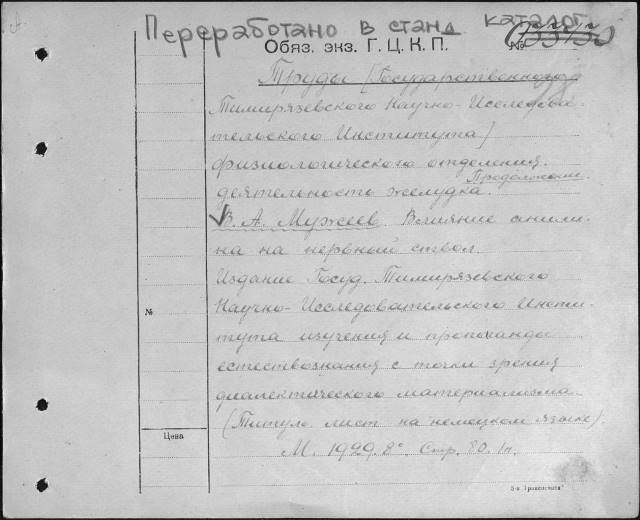 Переработано в станд каталог
Обяз. экз. Г. Ц. К. П. №
Труды [Государственного
Тимирязевского Научно-Исследова-
тельского Института]
физиологического отделения.
Продолжение.
деятельность желудка.
В. А. Мужеев. Влияние анили-
на на нервный ствол.
Издание Госуд. Тимирязевского
Научно-Исследовательского Инсти-
№
тута изучения и пропоганды
естествознания с точки зрения
диалектического материализма
(Титул. лист на немецком языке)
Цена
М. 1929. 8°. Стр. 80. 1л.